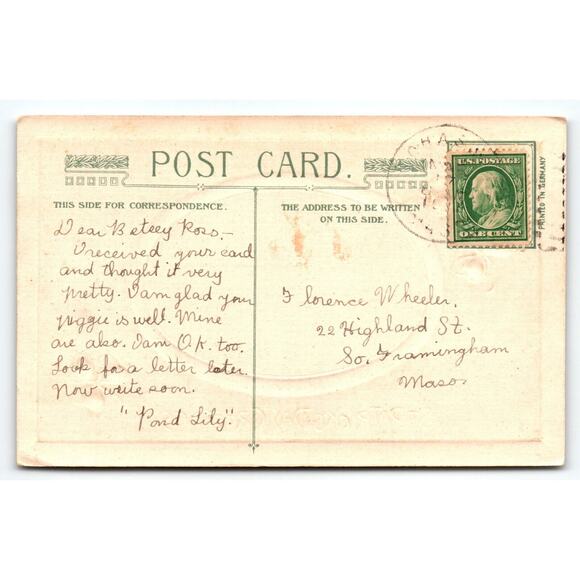 POST CARD.
THIS SIDE FOR CORRESPONDENCE.
THE ADDRESS TO BE WRITTEN
ON THIS SIDE.
U.S. POSTAGE
ONE CENT
PRINTED IN GERMANY
Dear Betsey Ross,—
I received your card
and thought it very
pretty. I am glad your
piggie is well. Mine
are also. I am O.K. too.
Look for a letter later.
Now write soon.
"Pond Lily".
Florence Wheeler,
22 Highland St.
So. Framingham
Mass.